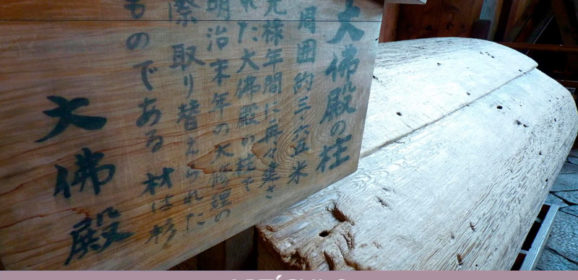 大佛殿の柱
周囲約三、六五米
元禄年間に再々建さ
れた大佛殿の柱で
明治末年の大修理の
際取り替えられた
ものである 材は杉
大佛殿